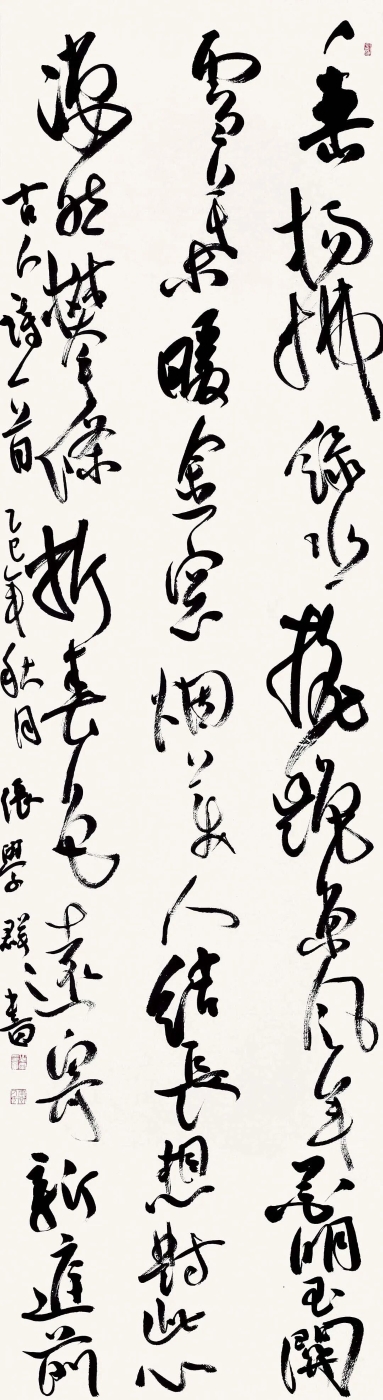 垂楊拂綠水搖艷東風年花明玉關
雪葉暖金窗烟美人結長想對此心
淒然攀條折春色遠寄龍庭前
古人詩一首 乙巳年秋月 張學群書